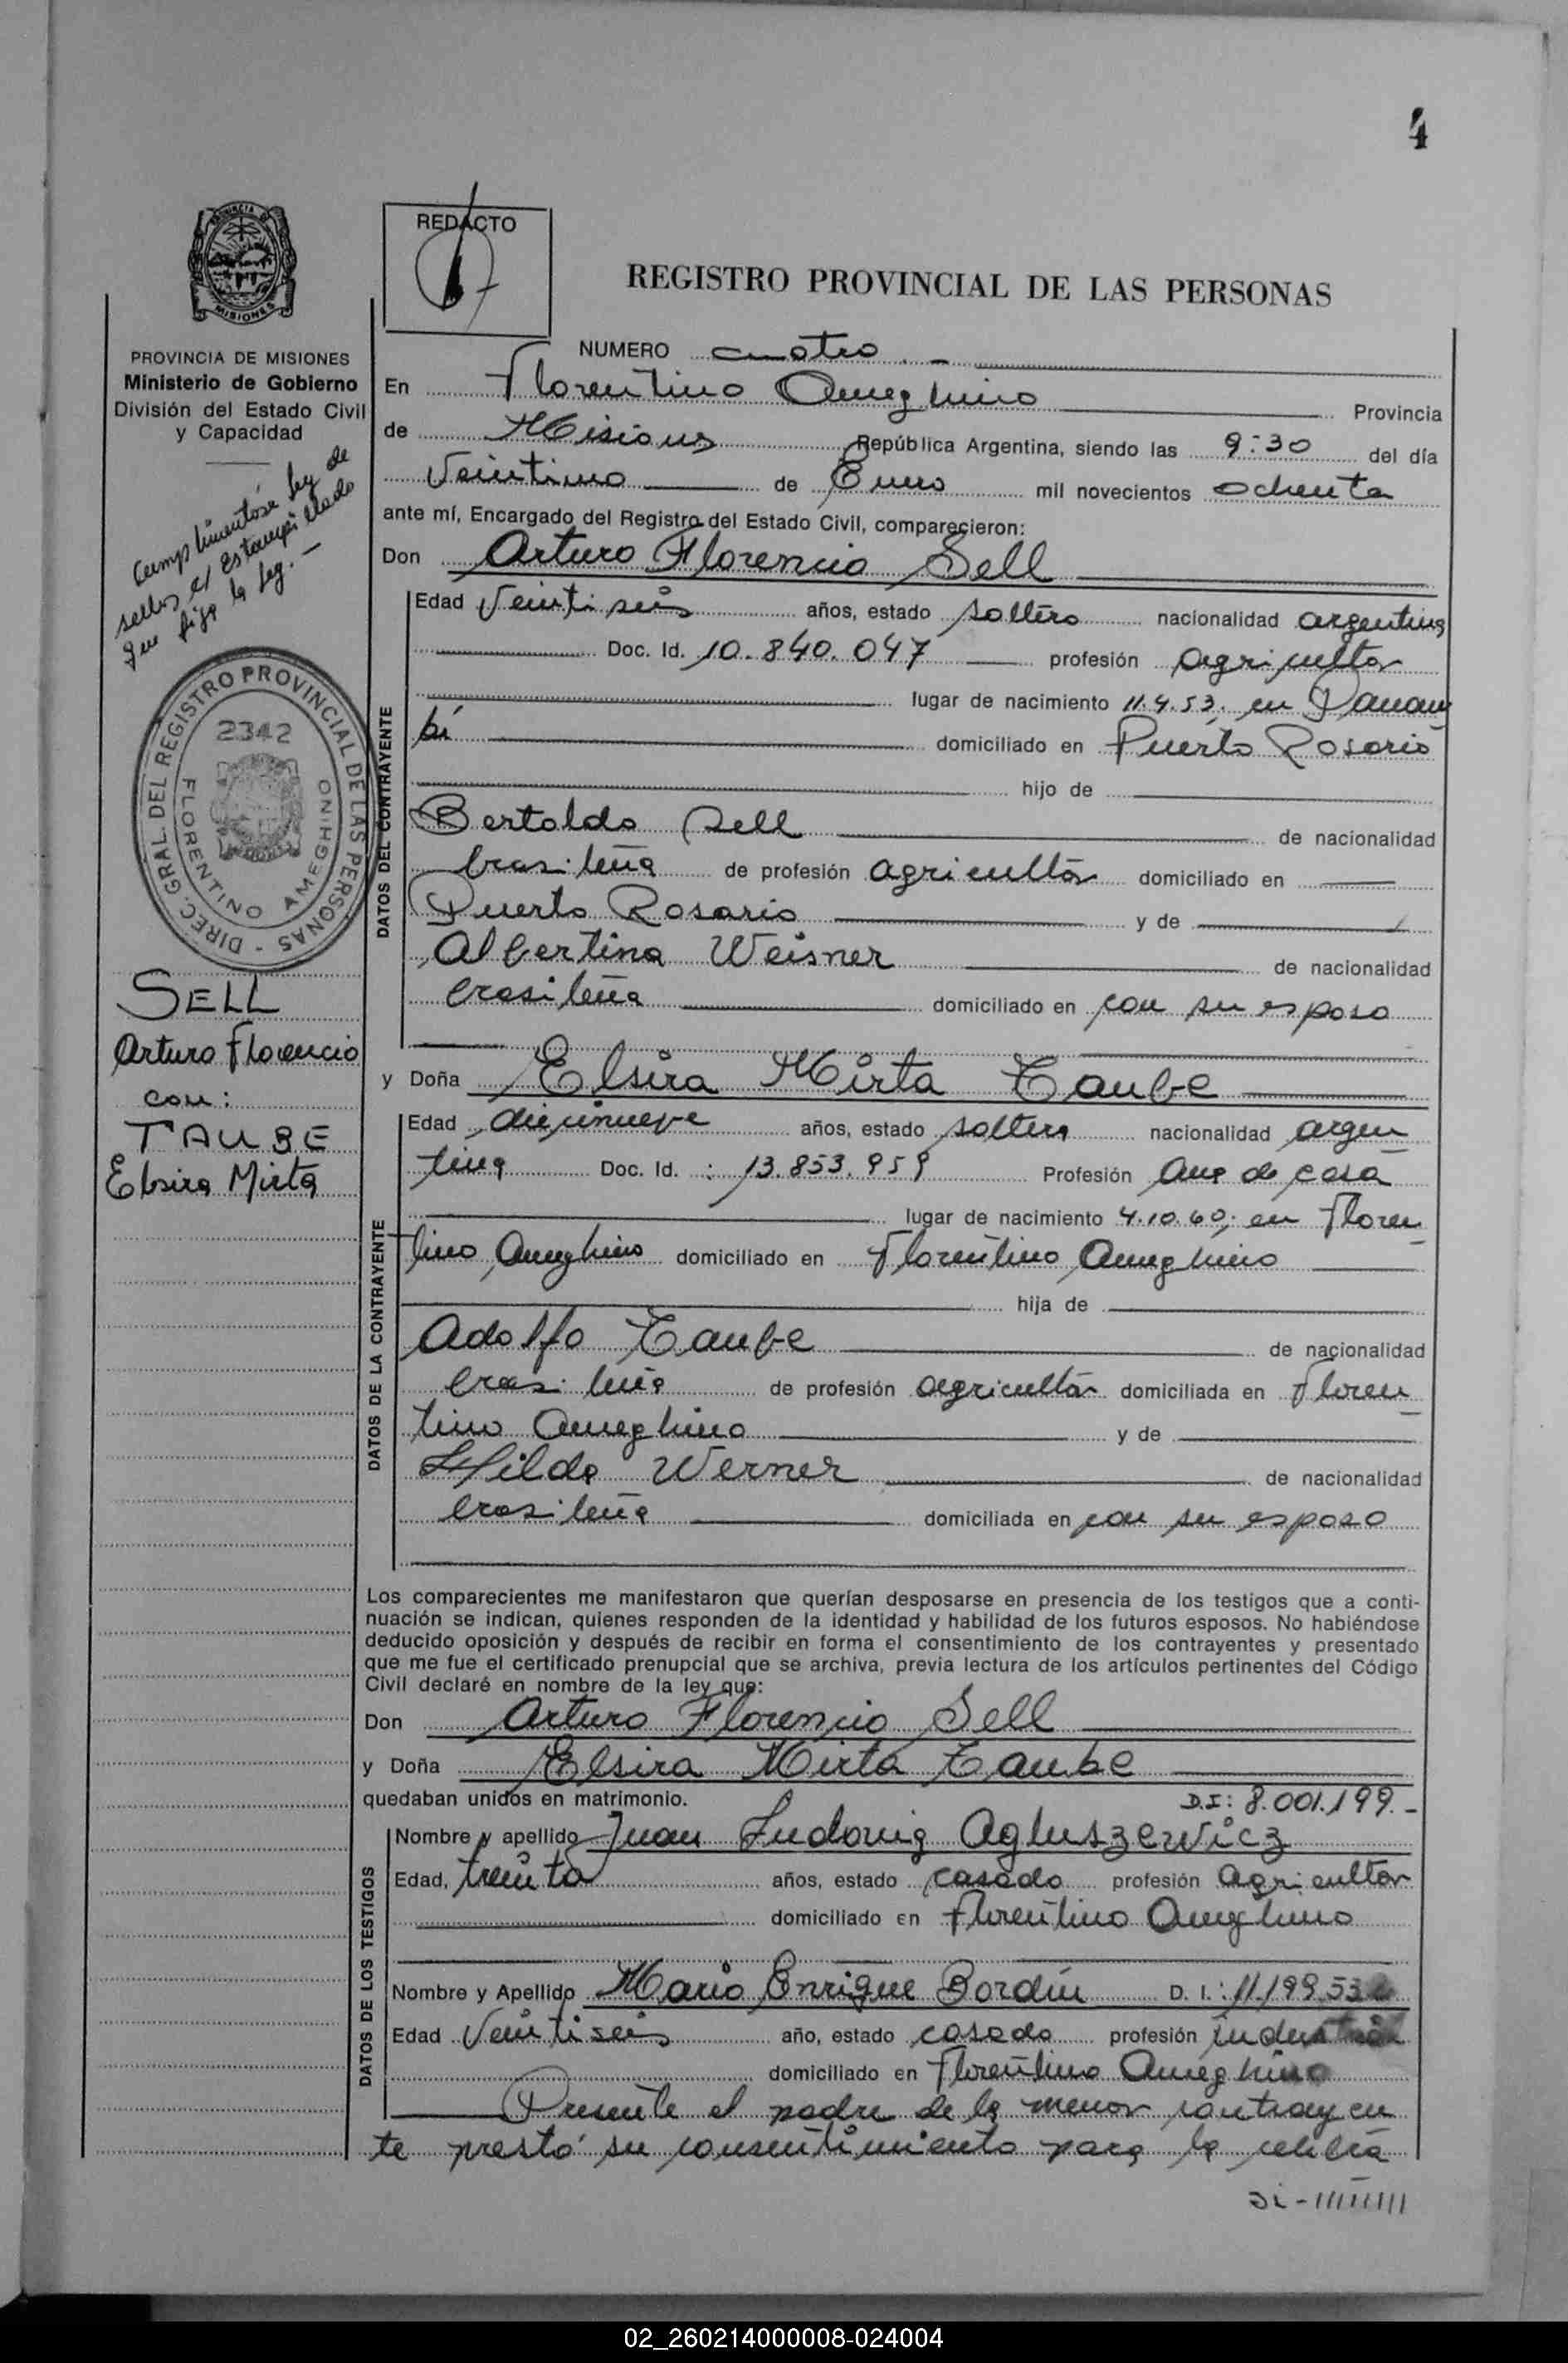 4
REDACTO
REGISTRO PROVINCIAL DE LAS PERSONAS
MISIONES
PROVINCIA DE MISIONES
Ministerio de Gobierno
División del Estado Civil
y Capacidad
Cumplimentóse ley de
sellos c/ estampillado
que fija la ley.-
DIREC. GRAL. DEL REGISTRO PROVINCIAL DE LAS PERSONAS -
2342
FLORENTINO AMEGHINO
SELL
Arturo Florencio
con:
TAUBE
Elsira Mirta
NUMERO cuatro.-
En Florentino Ameghino Provincia
de Misiones República Argentina, siendo las 9:30 del día
Veintiuno de Enero mil novecientos ochenta
ante mí, Encargado del Registro del Estado Civil, comparecieron:
Don Arturo Florencio Sell
DATOS DEL CONTRAYENTE
Edad Veintiseis años, estado soltero nacionalidad argentina
Doc. Id. 10.840.047 profesión agricultor
lugar de nacimiento 11.4.53; en Panam
bí domiciliado en Puerto Rosario
hijo de
Bertoldo Sell de nacionalidad
brasileña de profesión agricultor domiciliado en
Puerto Rosario y de
Albertina Weisner de nacionalidad
brasileña domiciliado en con su esposo
y Doña Elsira Mirta Taube
DATOS DE LA CONTRAYENTE
Edad diecinueve años, estado soltera nacionalidad argen
tina Doc. Id. : 13.853.959 Profesión Ama de casa
lugar de nacimiento 4.10.60; en Floren
tino Ameghino domiciliado en Florentino Ameghino
hija de
Adolfo Taube de nacionalidad
brasileña de profesión agricultor domiciliada en Floren
tino Ameghino y de
Hilda Werner de nacionalidad
brasileña domiciliada en con su esposo
Los comparecientes me manifestaron que querían desposarse en presencia de los testigos que a conti-
nuación se indican, quienes responden de la identidad y habilidad de los futuros esposos. No habiéndose
deducido oposición y después de recibir en forma el consentimiento de los contrayentes y presentado
que me fue el certificado prenupcial que se archiva, previa lectura de los artículos pertinentes del Código
Civil declaré en nombre de la ley que:
Don Arturo Florencio Sell
y Doña Elsira Mirta Taube
quedaban unidos en matrimonio. D.I: 8.001.199.-
DATOS DE LOS TESTIGOS
Nombre y apellido Juan Ludovig Agluszewicz
Edad, treinta años, estado casado profesión Agricultor
domiciliado en Florentino Ameghino
Nombre y Apellido Mario Enrique Bordín D. I.: 11.199.53
Edad Veintiseis año, estado casado profesión industrial
domiciliado en Florentino Ameghino
Presente el padre de la menor contrayen
te prestó su consentimiento para la celebra
si-//////////
02_260214000008-024004